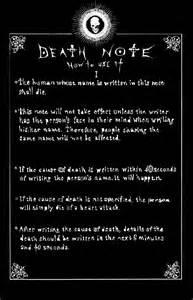 DEATH NOTE
How to use it
I
The human whose name is written in this note
shall die.
This note will not take effect unless the writer
has the person's face in their mind when writing
his/her name. Therefore, people sharing the
same name will not be affected.
If the cause of death is written within 40 seconds
of writing the person's name, it will happen.
If the cause of death is not specified, the person
will simply die of a heart attack.
After writing the cause of death, details of the
death should be written in the next 6 minutes
and 40 seconds.